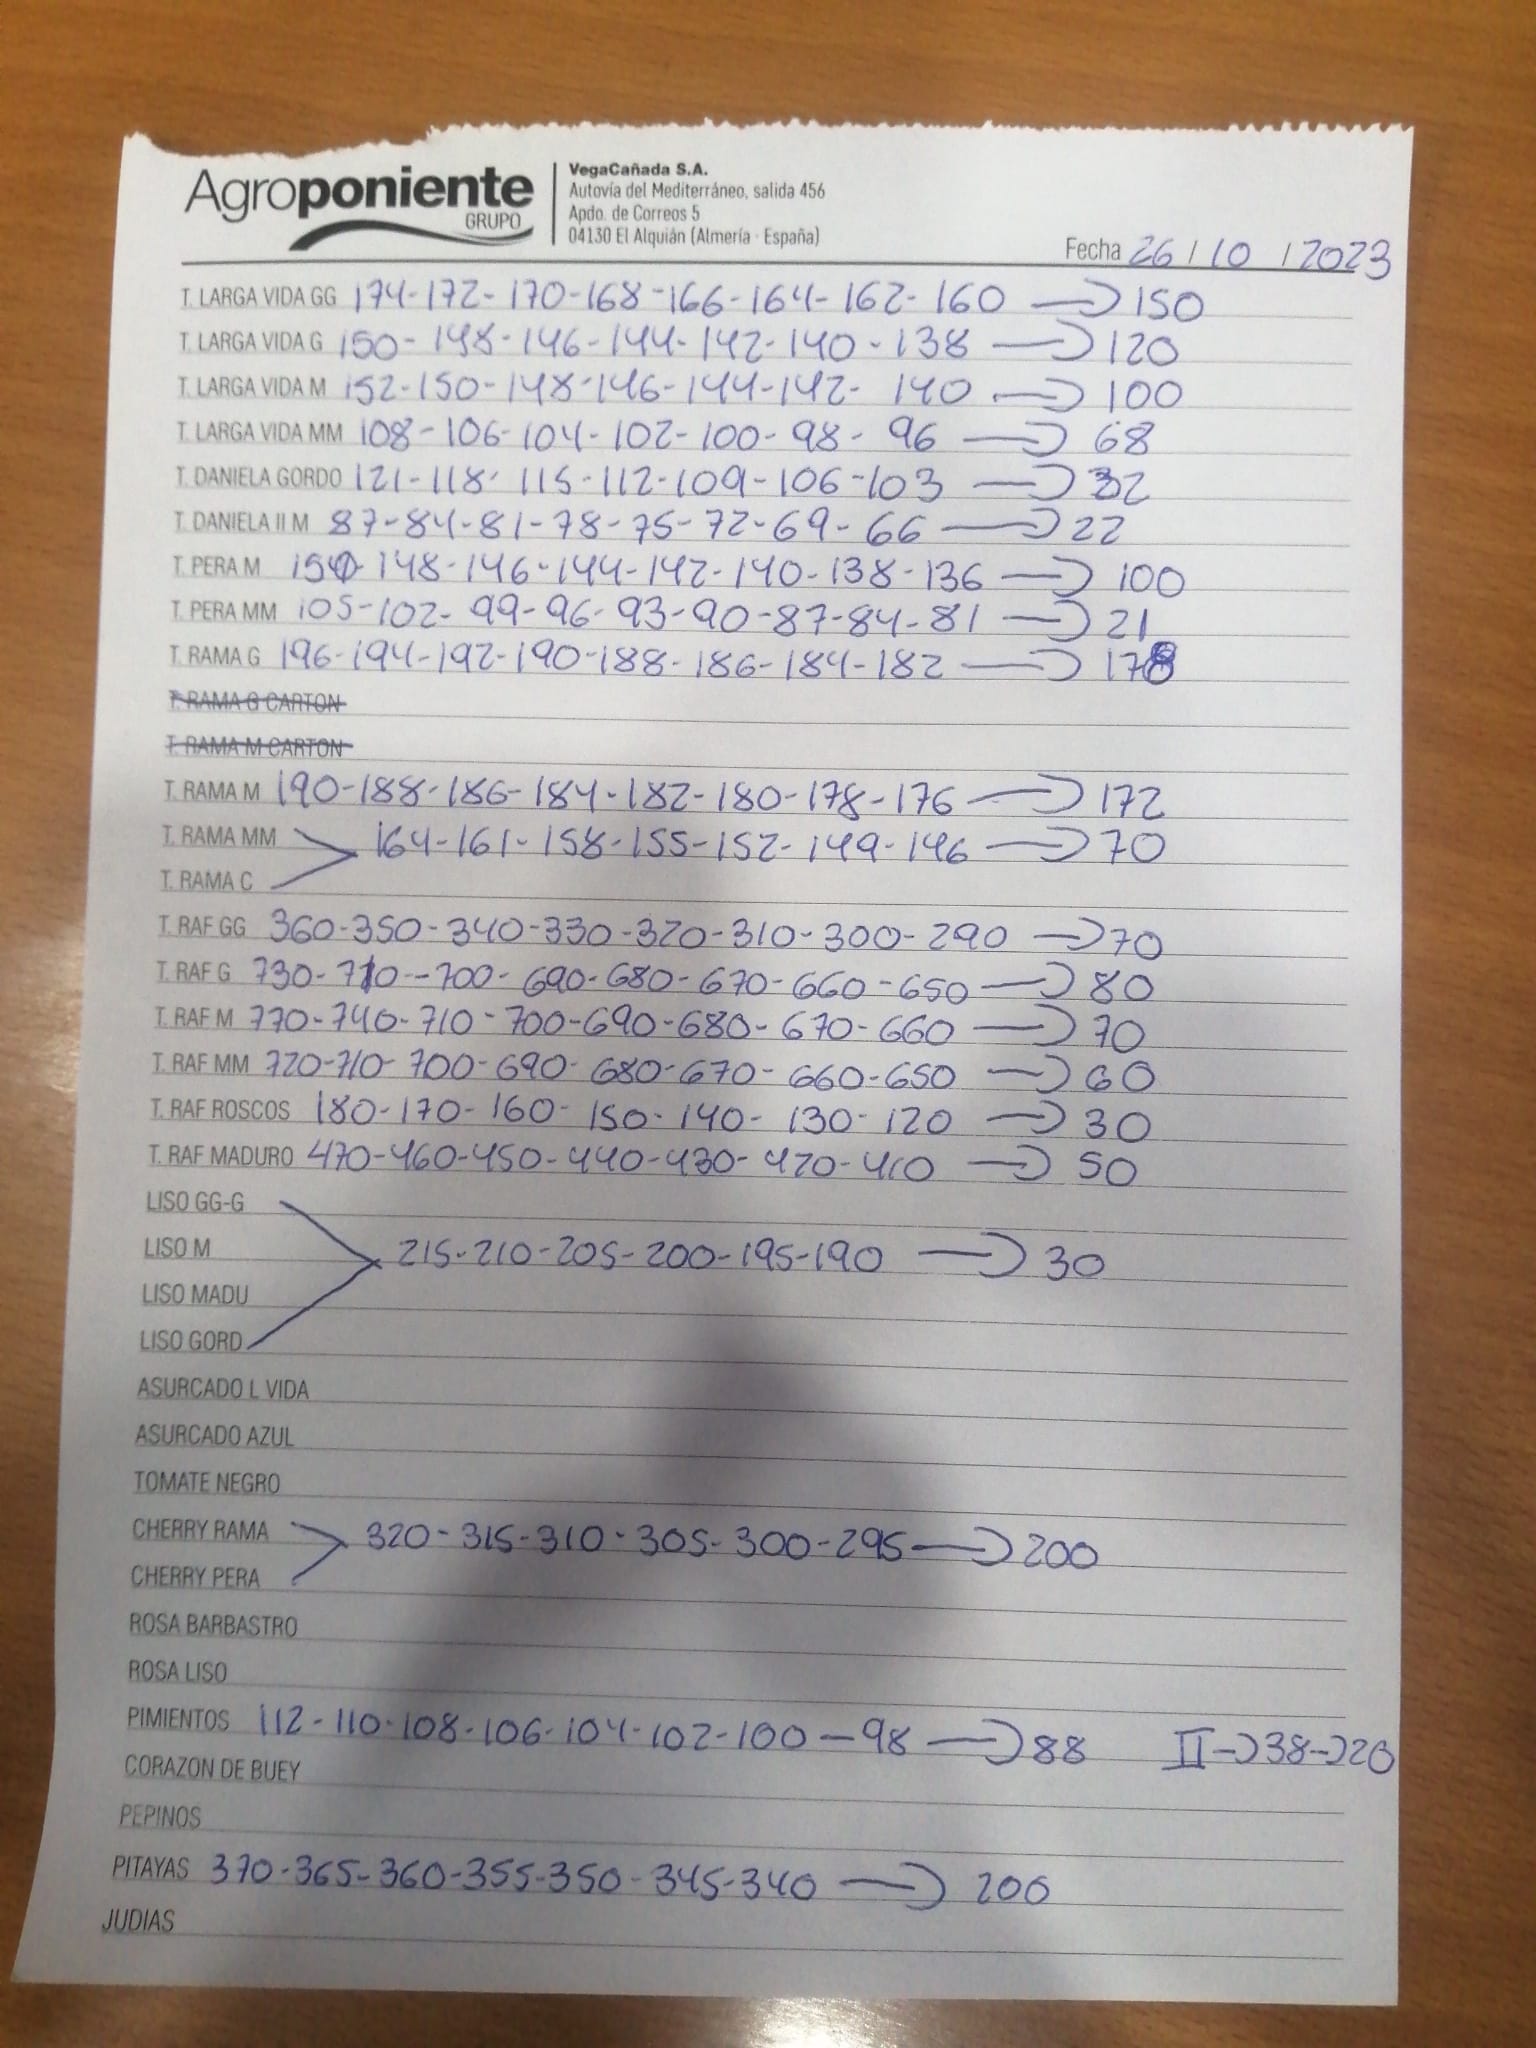 Agroponiente
GRUPO
VegaCañada S.A.
Autovía del Mediterráneo, salida 456
Apdo. de Correos 5
04130 El Alquián (Almería - España)
Fecha 26 / 10 / 2023
T. LARGA VIDA GG 174-172-170-168-166-164-162-160 → 150
T. LARGA VIDA G 150-148-146-144-142-140-138 → 120
T. LARGA VIDA M 152-150-148-146-144-142-140 → 100
T. LARGA VIDA MM 108-106-104-102-100-98-96 → 68
T. DANIELA GORDO 121-118-115-112-109-106-103 → 32
T. DANIELA II M 87-84-81-78-75-72-69-66 → 22
T. PERA M 150-148-146-144-142-140-138-136 → 100
T. PERA MM 105-102-99-96-93-90-87-84-81 → 21
T. RAMA G 196-194-192-190-188-186-184-182 → 178
T. RAMA G CARTON
T. RAMA M CARTON
T. RAMA M 190-188-186-184-182-180-178-176 → 172
T. RAMA MM 164-161-158-155-152-149-146 → 70
T. RAMA C
T. RAF GG 360-350-340-330-320-310-300-290 → 70
T. RAF G 730-710-700-690-680-670-660-650 → 80
T. RAF M 770-740-710-700-690-680-670-660 → 70
T. RAF MM 720-710-700-690-680-670-660-650 → 60
T. RAF ROSCOS 180-170-160-150-140-130-120 → 30
T. RAF MADURO 470-460-450-440-430-420-410 → 50
LISO GG-G
LISO M 215-210-205-200-195-190 → 30
LISO MADU
LISO GORD
ASURCADO L VIDA
ASURCADO AZUL
TOMATE NEGRO
CHERRY RAMA 320-315-310-305-300-295 → 200
CHERRY PERA
ROSA BARBASTRO
ROSA LISO
PIMIENTOS 112-110-108-106-104-102-100-98 → 88 II → 38 → 20
CORAZON DE BUEY
PEPINOS
PITAYAS 370-365-360-355-350-345-340 → 200
JUDIAS